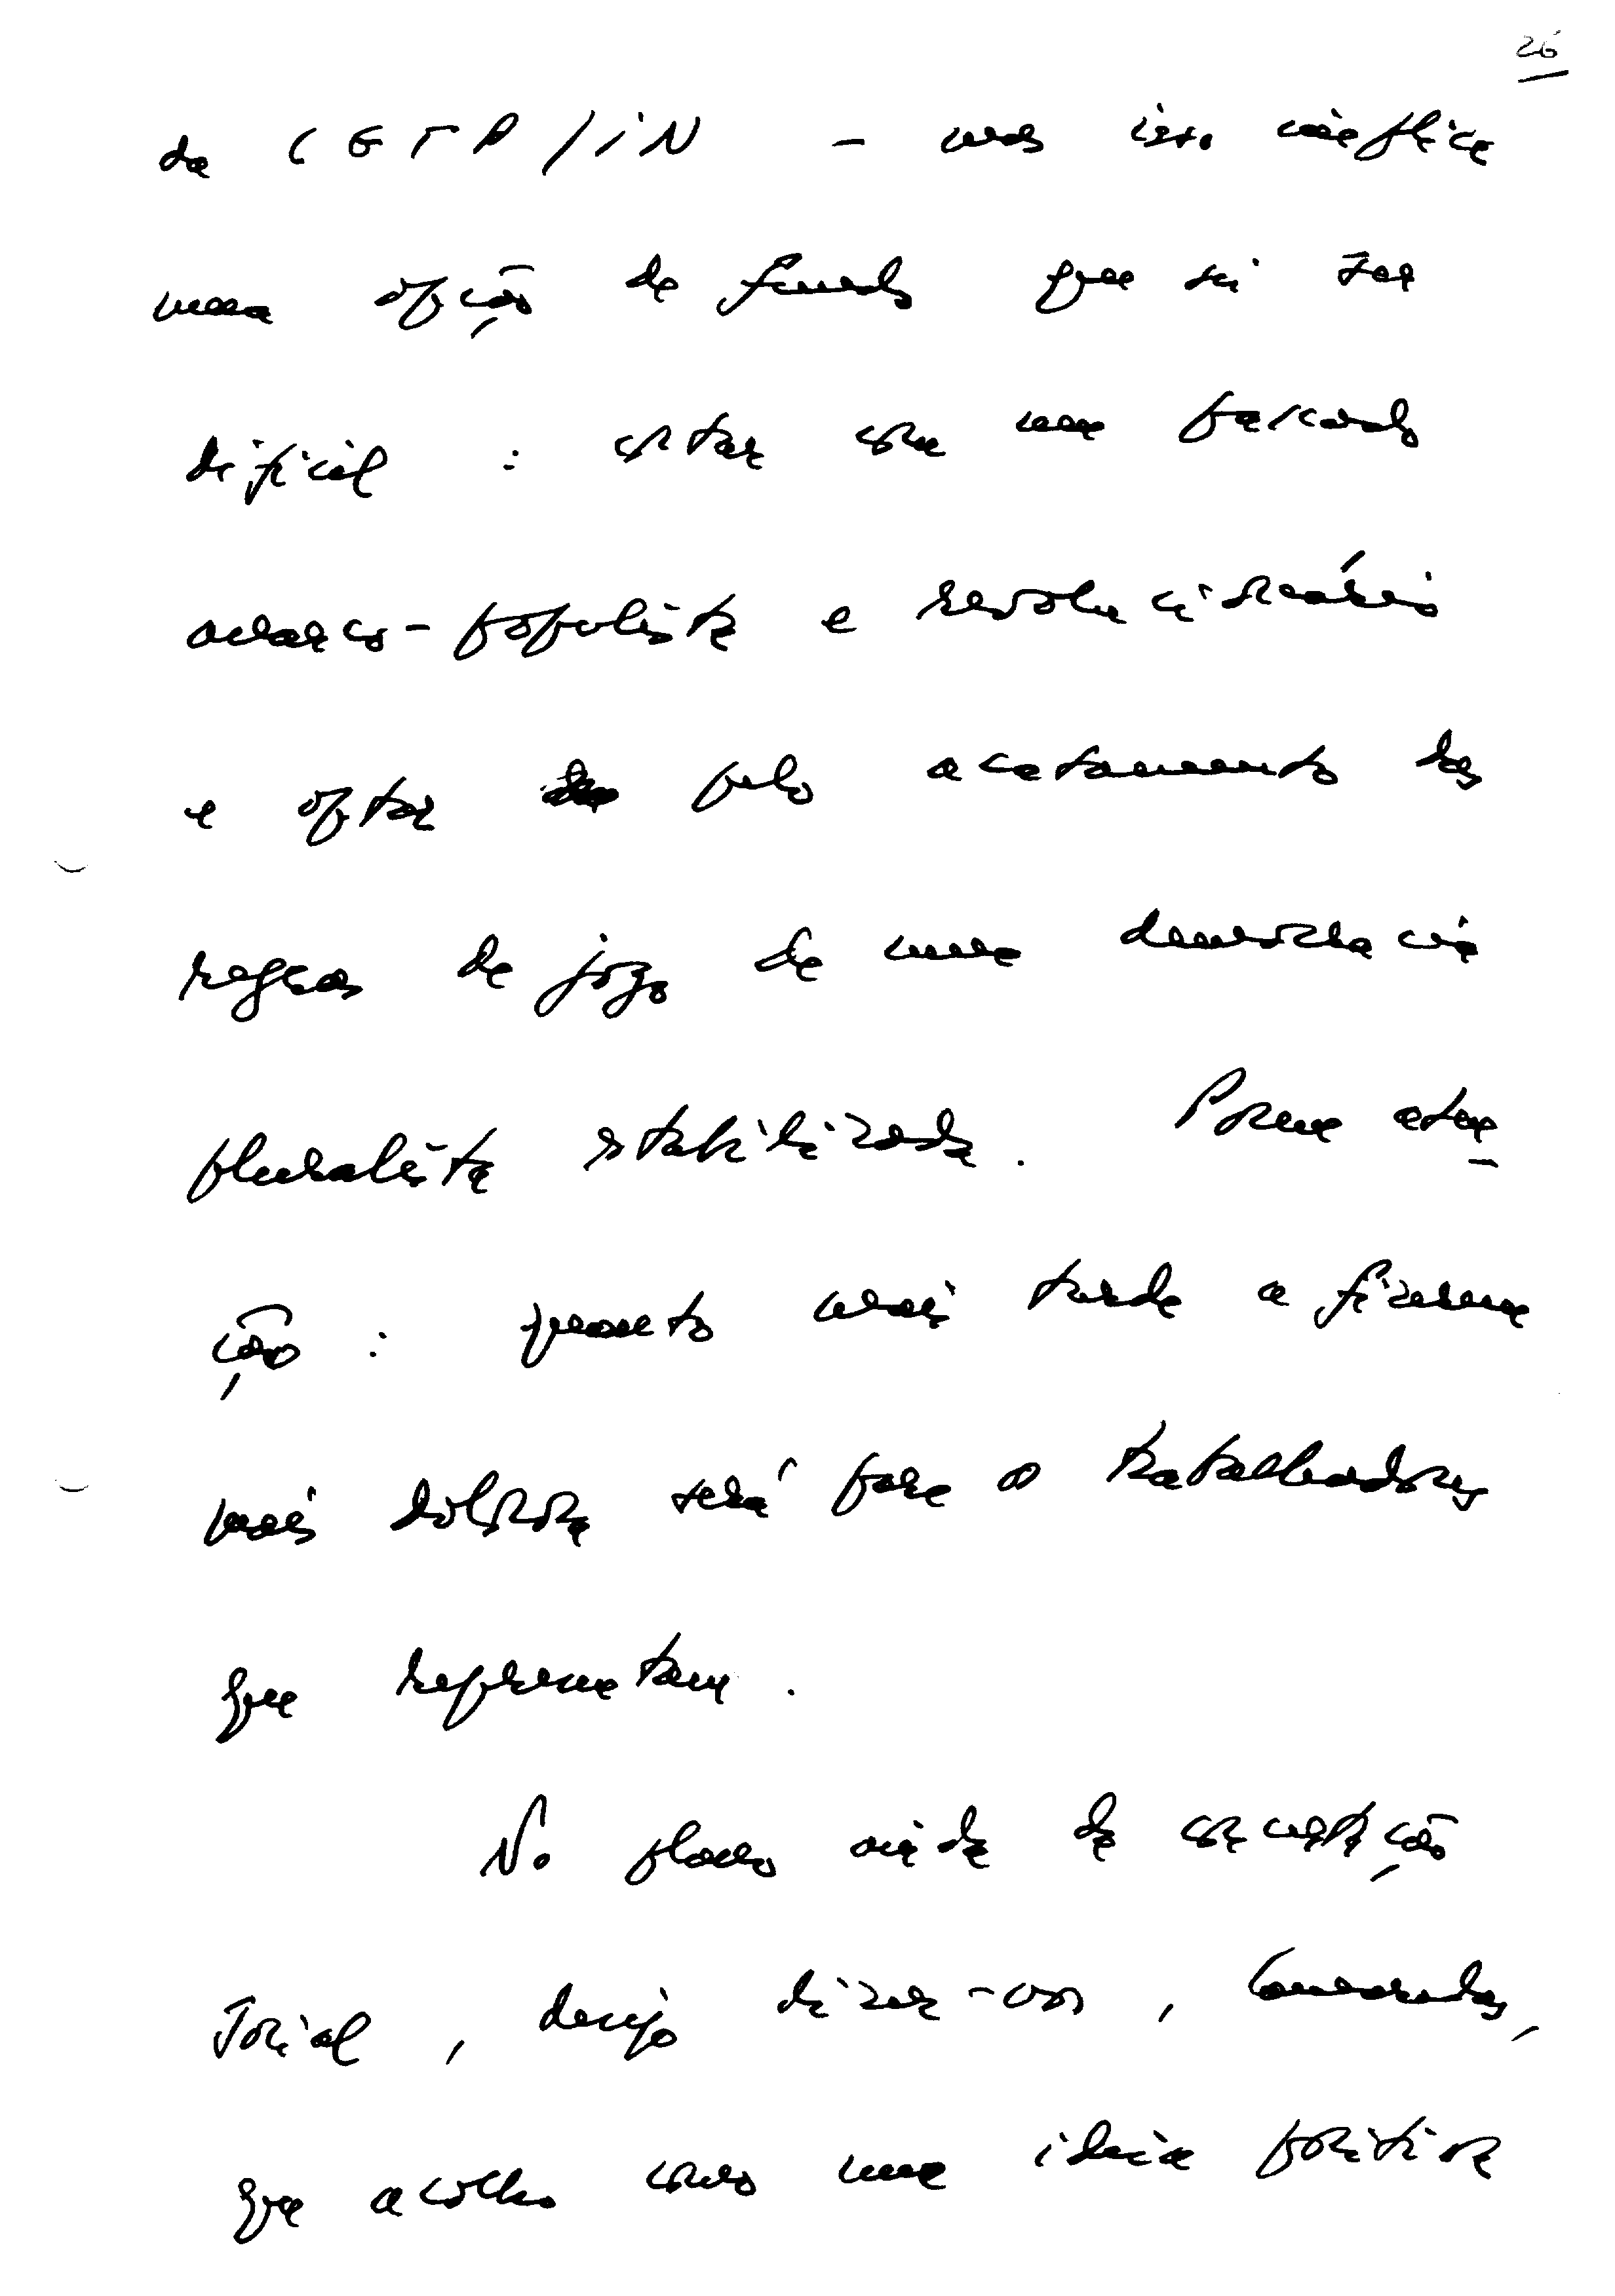 26
da CGTP/IN - mas isso implica
uma opção de fundo que sei ser
difícil : cortar com um passado
anarco-populista e revolucionário
e optar pelo acatamento das
regras do jogo de uma democracia
pluralista estabilizada. Porém aten-
ção : quanto mais tarde a fizerem
mais dolorosa será para os trabalhadores
que representam.
No plano ainda da concertação
social, desejo dizer-vos, Camaradas,
que acolho como uma ideia positiva